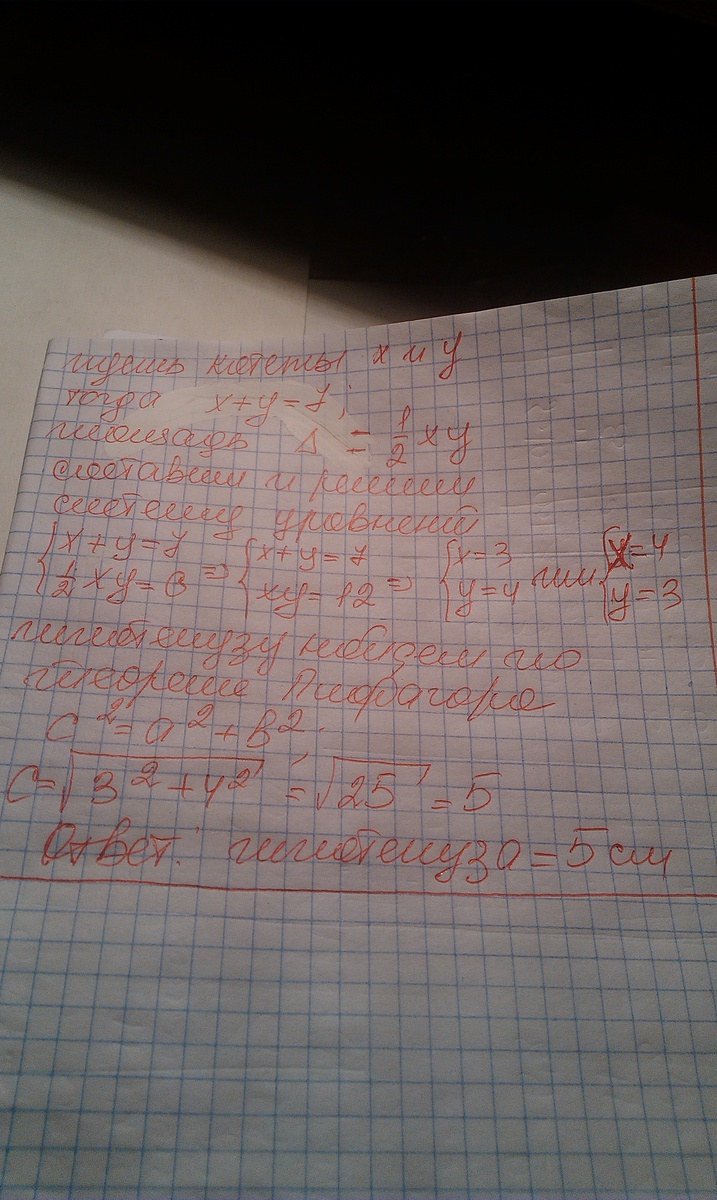 пусть катеты x и y
тогда x+y=7;
площадь Δ = 1/2 xy
составим и решим
систему уравнений
{x+y=7 {x+y=7 {x=3 {x=4
{1/2 xy=6 => {xy=12 => {y=4 или {y=3
гипотенузу найдем по
теореме Пифагора
c²=a²+b²;
c=√3²+4² = √25 = 5
Ответ: гипотенуза = 5 см